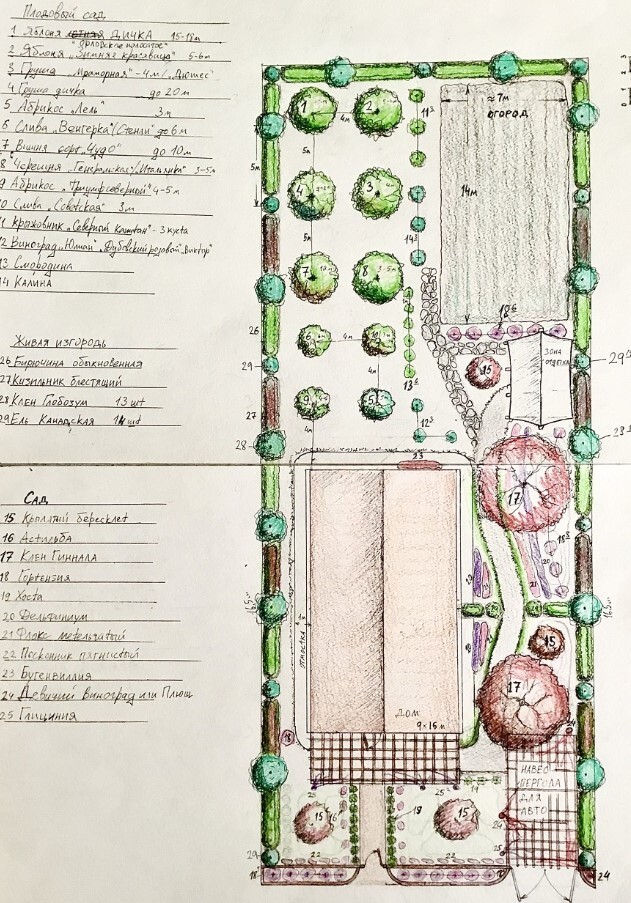 Плодовый сад
1 Яблоня дичка 15-18м
"Орловское полосатое"
2 Яблоня „Зимняя красавица" 5-6м
3 Груша „Мраморная" - 4м / „Дюшес"
4 Груша дичка до 20м
5 Абрикос „Лель" 3м
6 Слива „Венгерка"/(Стенли) до 6м
7 Вишня сорт „Чудо" до 10м
8 Черешня „Генеральская"/„Итальянка" 3-5м
9 Абрикос „Триумф северный" 4-5м
10 Слива „Советская" 3м
11 Крыжовник „Северный капитан" - 3 куста
12 Виноград „Юлиан" „Дубовский розовый" „Виктор"
13 Смородина
14 Калина
Живая изгородь
26 Бирючина обыкновенная
27 Кизильник блестящий
28 Клен Глобозум 13 шт
29 Ель Канадская 14 шт
Сад
15 Крылатый бересклет
16 Астильба
17 Клен Гиннала
18 Гортензия
19 Хоста
20 Дельфиниум
21 Флокс метельчатый
22 Посконник пятнистый
23 Бугенвиллия
24 Девичий Виноград или Плющ
25 Глициния
1 2 11³ ≈7м
4м ОГОРОД
5м 5м
4 3 14м
5м 14³
7 8 3-5м
18⁶
26 6 4м 9
ЗОНА ОТДЫХА
29 4м 15 29
13⁸
27 9 5
12³
28 4м 28
23
17
18³
21
ОТМОСТКА 1м
15
17
ДОМ
9×15м
18
НАВЕС
ПЕРГОЛА
ДЛЯ
АВТО
25 16 25² 19
15 19 15 24
25
29 22 22
18 24